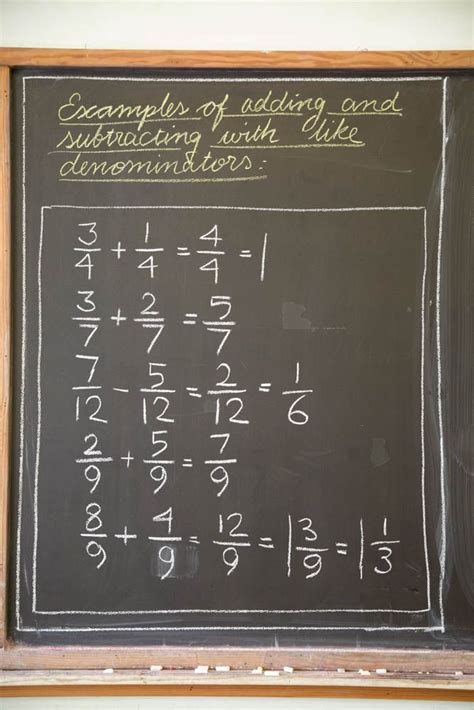 Examples of adding and
subtracting with like
denominators:
3/4 + 1/4 = 4/4 = 1
3/7 + 2/7 = 5/7
7/12 - 5/12 = 2/12 = 1/6
2/9 + 5/9 = 7/9
8/9 + 4/9 = 12/9 = 1 3/9 = 1 1/3